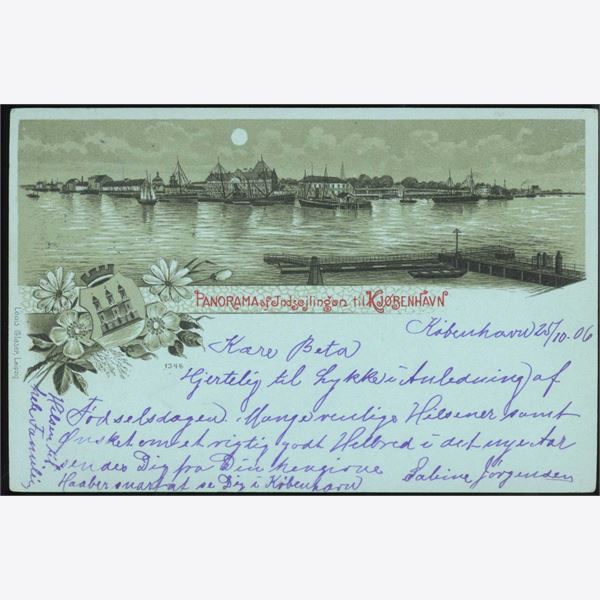 PANORAMA af Indsejlingen til KJØBENHAVN
Louis Glaser, Leipzig
1346
København 25/10.06
Kære Beta
Hjertelig til Lykke i Anledning af
Fødselsdagen. Mange venlige Hilsener samt
Ønsket om et rigtig godt Helbred i det nye Aar
sendes Dig fra Din hengivne
Haaber snart at se Dig i København
Sabine Jörgensen
Hilsen til
hele Familien